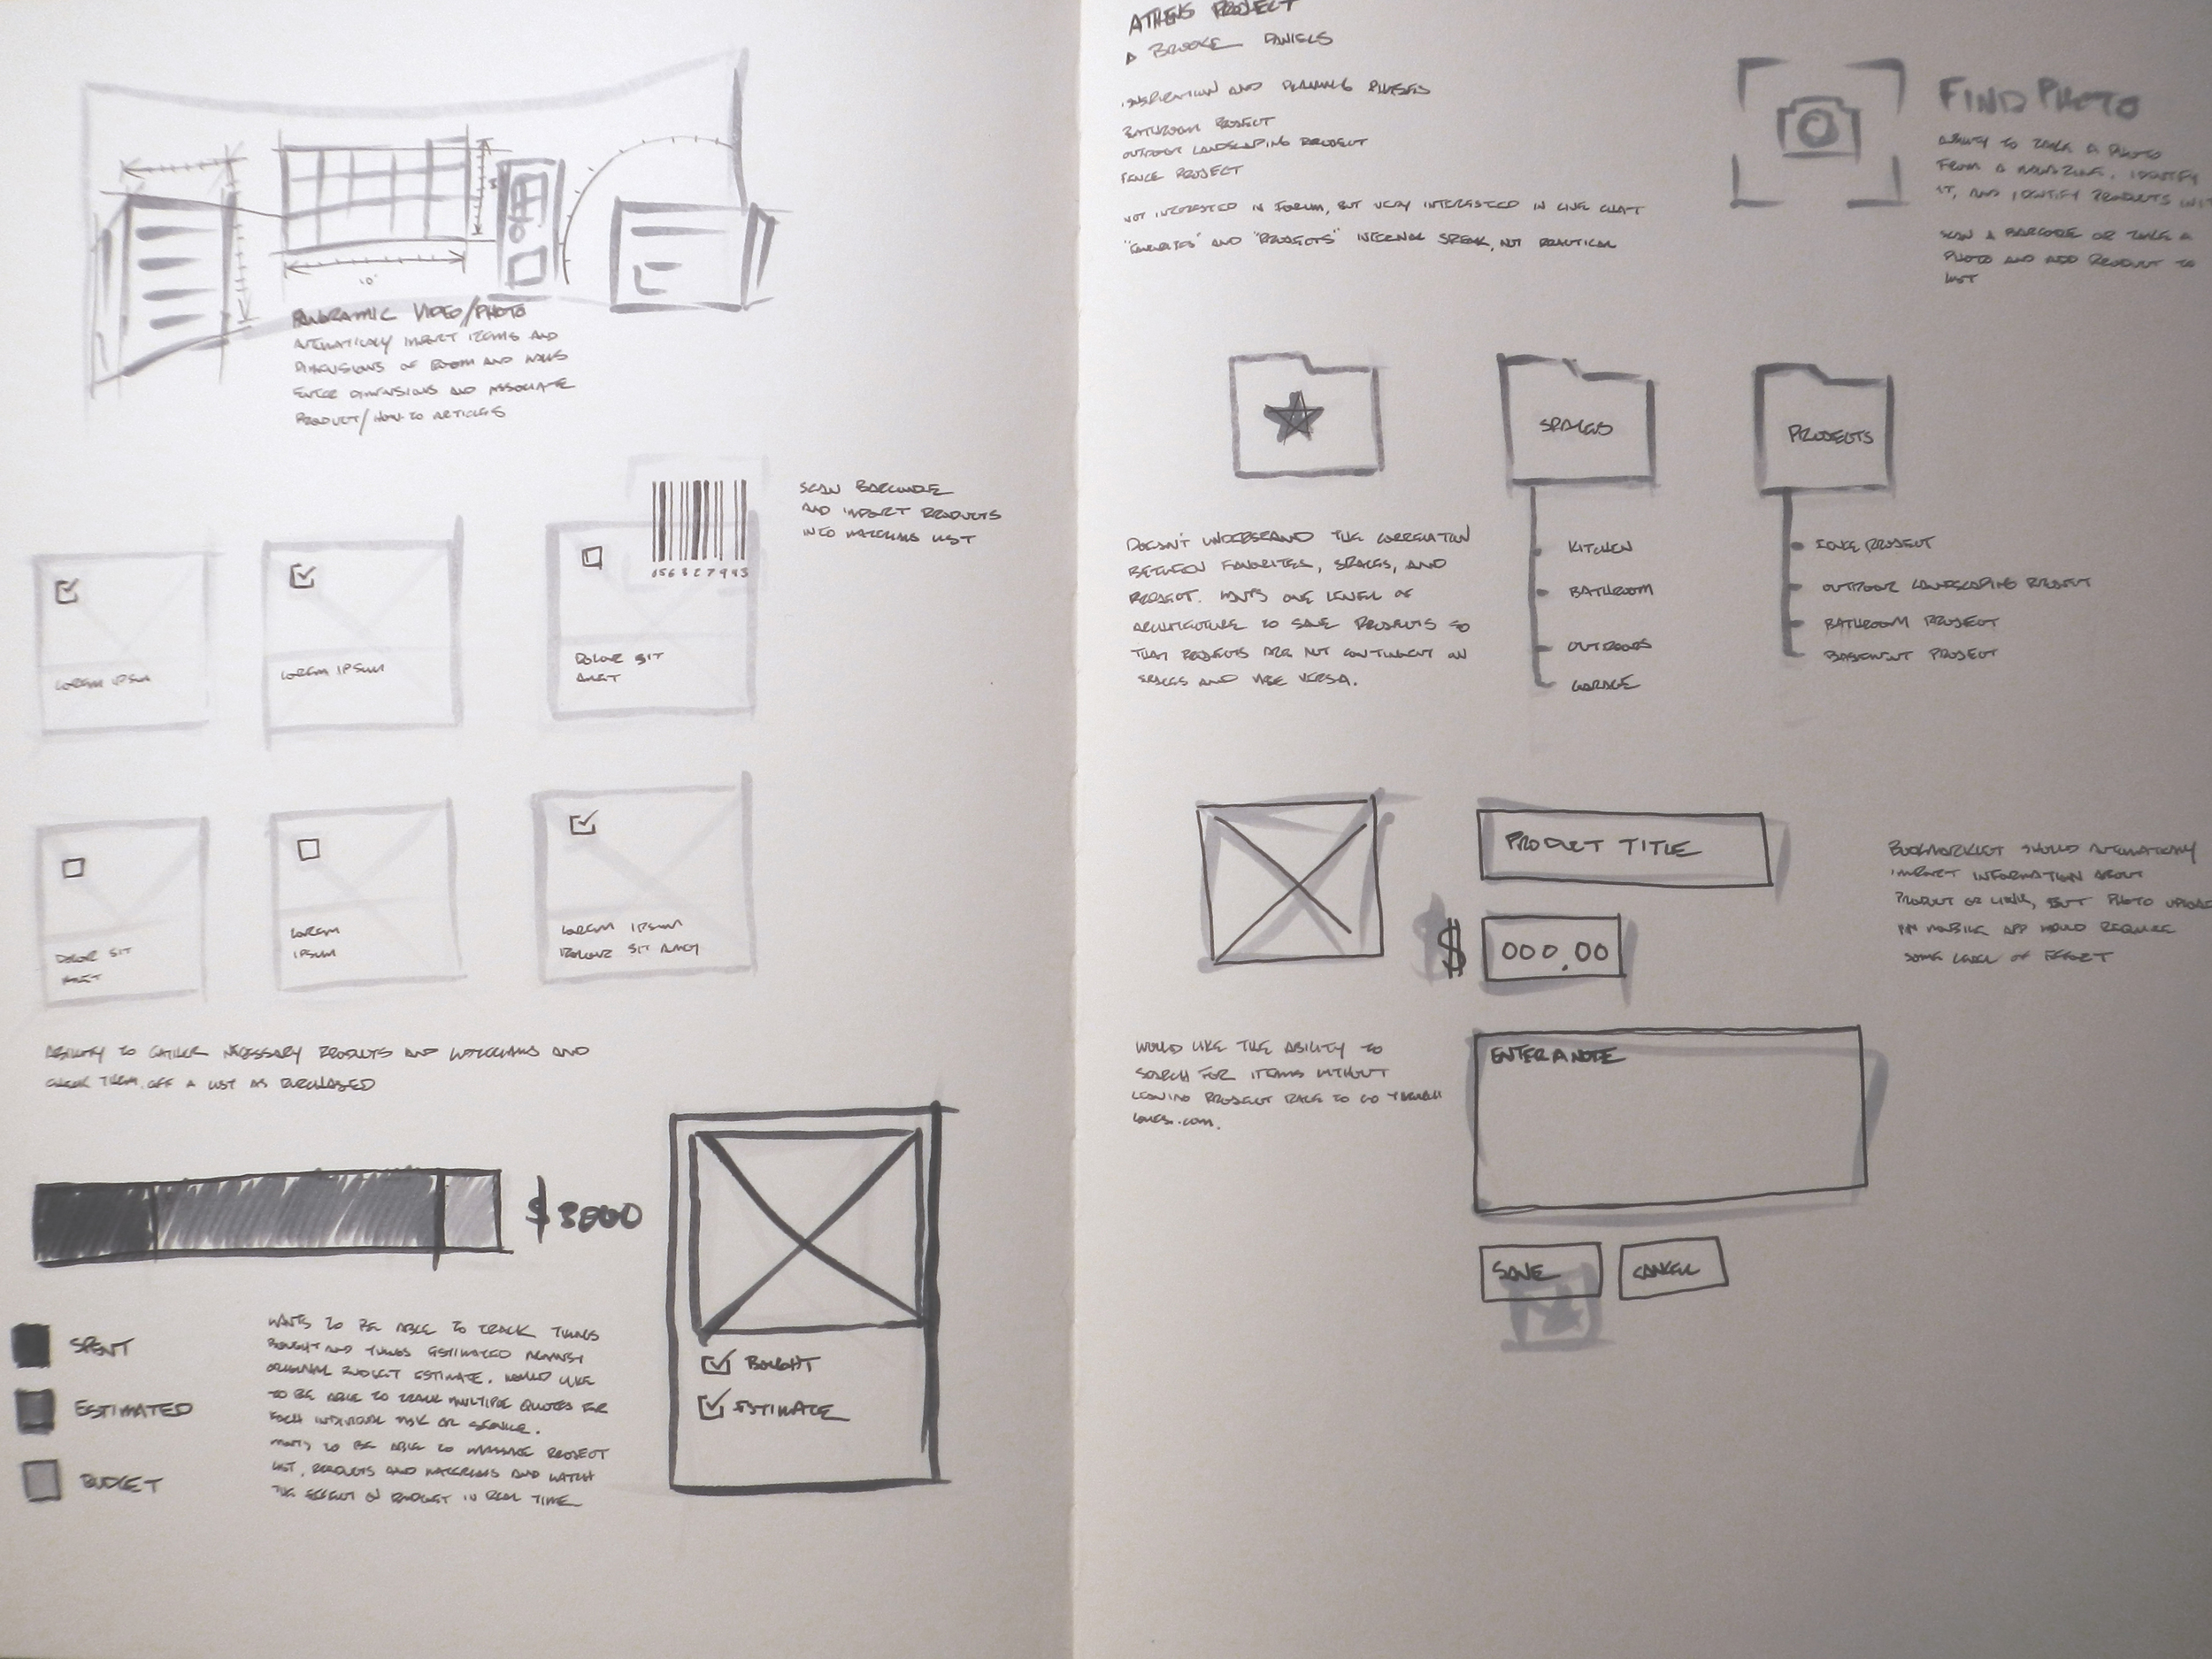 10'
PANORAMIC VIDEO/PHOTO
AUTOMATICALLY IMPORT ITEMS AND
DIMENSIONS OF ROOM AND WALLS
ENTER DIMENSIONS AND ASSOCIATE
PRODUCT/HOW-TO ARTICLES
SCAN BARCODE
AND IMPORT PRODUCTS
INTO MATERIALS LIST
LOREM IPSUM
LOREM IPSUM
DOLOR SIT
AMET
DOLOR SIT
AMET
LOREM
IPSUM
LOREM IPSUM
DOLOR SIT AMET
ABILITY TO GATHER NECESSARY PRODUCTS AND MATERIALS AND
CHECK THEM OFF A LIST AS PURCHASED
$3000
SPENT
ESTIMATED
BUDGET
WANTS TO BE ABLE TO TRACK THINGS
BOUGHT AND THINGS ESTIMATED AGAINST
ORIGINAL BUDGET ESTIMATE. WOULD LIKE
TO BE ABLE TO TRACK MULTIPLE QUOTES FOR
EACH INDIVIDUAL TASK OR SERVICE.
WANTS TO BE ABLE TO MANAGE PROJECT
LIST, PRODUCTS AND MATERIALS AND WATCH
THE EFFECT ON BUDGET IN REAL TIME
BOUGHT
ESTIMATE
ATHENS PROJECT
BROOKE DANIELS
INSPIRATION AND PLANNING PHASES
BATHROOM PROJECT
OUTDOOR LANDSCAPING PROJECT
FENCE PROJECT
NOT INTERESTED IN FORUM, BUT VERY INTERESTED IN LIVE CHAT
"FAVORITES" AND "PROJECTS" INTERNAL SPEAK, NOT PRACTICAL
FIND PHOTO
ABILITY TO TAKE A PHOTO
FROM A MAGAZINE, IDENTIFY
IT, AND IDENTIFY PRODUCTS IN IT
SCAN A BARCODE OR TAKE A
PHOTO AND ADD PRODUCT TO
LIST
SPACES
PROJECTS
DOESN'T UNDERSTAND THE CORRELATION
BETWEEN FAVORITES, SPACES, AND
PROJECT. WANTS ONE LEVEL OF
ARCHITECTURE TO SAVE PRODUCTS SO
THAT PROJECTS ARE NOT CONTINGENT ON
SPACES AND VISE VERSA.
KITCHEN
BATHROOM
OUTDOORS
GARAGE
FENCE PROJECT
OUTDOOR LANDSCAPING PROJECT
BATHROOM PROJECT
BASEMENT PROJECT
PRODUCT TITLE
$ 000.00
BOOKMARKLET SHOULD AUTOMATICALLY
IMPORT INFORMATION ABOUT
PRODUCT OR LINK, BUT PHOTO UPLOAD
IN MOBILE APP WOULD REQUIRE
SOME LEVEL OF EFFORT
WOULD LIKE THE ABILITY TO
SEARCH FOR ITEMS WITHOUT
LEAVING PROJECT PAGE TO GO THROUGH
LOWES.COM.
ENTER A NOTE
SAVE
CANCEL